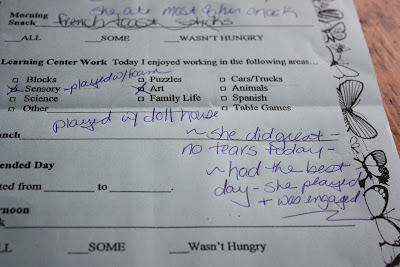 she ate most of her snack
Morning
Snack french toast sticks
___ALL ___SOME ___WASN'T HUNGRY
Learning Center Work Today I enjoyed working in the following areas...
Blocks Puzzles Cars/Trucks
Sensory -played w/foam Art Animals
Science Family Life Spanish
Other Table Games
played w/ doll house
unch
~she did great-
no tears today-
ended Day
~had the best
arted from ______ to ______.
day- she played
+ was engaged
ernoon
k
LL ___SOME ___Wasn't Hungry